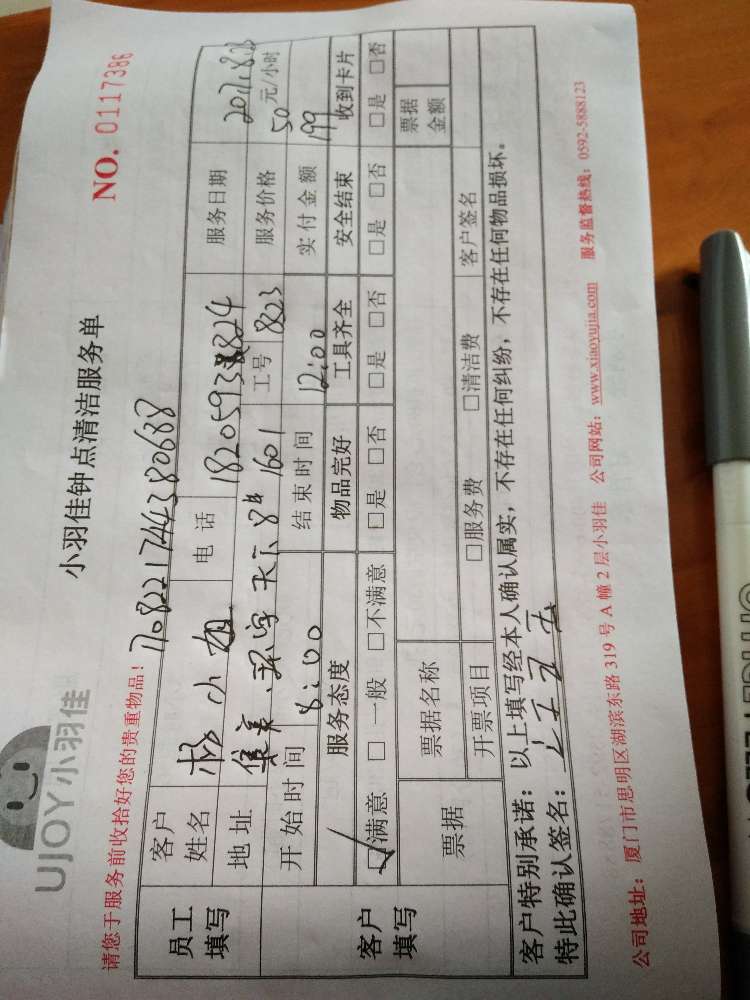 UJOY小羽佳
小羽佳钟点清洁服务单
NO. 0117386
请您于服务前收拾好您的贵重物品！
1708221744380688
员工填写
客户姓名 杨小姐 电话 服务日期 2017.8.23
地址 8# 1601 工号 823 服务价格 50 元/小时
开始时间 8:00 结束时间 12:00 实付金额 199
客户填写
服务态度 物品完好 工具齐全 安全结束 收到卡片
☑满意 □一般 □不满意 □是 □否 □是 □否 □是 □否 □是 □否
票据 票据名称 票据金额
开票项目 □服务费 □清洁费 客户签名
客户特别承诺：以上填写经本人确认属实，不存在任何纠纷，不存在任何物品损坏。
特此确认签名：
公司地址：厦门市思明区湖滨东路 319 号 A 幢 2 层小羽佳 公司网站：www.xiaoyujia.com 服务监督热线：0592-5888123